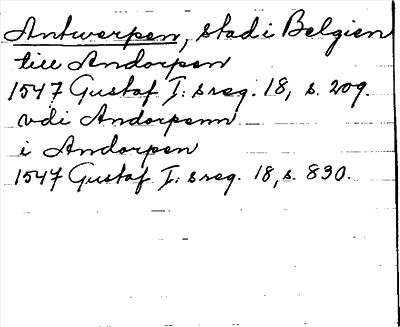 Antwerpen, stad i Belgien
till Andorpen
1547 Gustaf I: s reg. 18, s. 209.
vdi Andorpenn
i Andorpen
1547 Gustaf I: s reg. 18, s. 830.